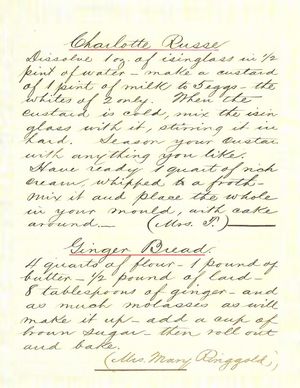 Charlotte Russe
Dissolve 1 oz. of isinglass in ½
pint of water – make a custard
of 1 pint of milk to 5 eggs – the
whites of 2 only. When the
custard is cold, mix the isin
glass with it, stirring it in
hard. Season your custar
with anything you like.
Have ready 1 quart of rich
cream, whipped to a froth –
mix it and place the whole
in your mould, with cake
around. – (Mrs. T.)
Ginger Bread.
4 quarts of flour – 1 pound of
butter – ½ pound of lard –
8 tablespoons of ginger – and
as much molasses as will
make it up – add a cup of
brown sugar – then roll out
and bake.
(Mrs. Mary Ringgold)